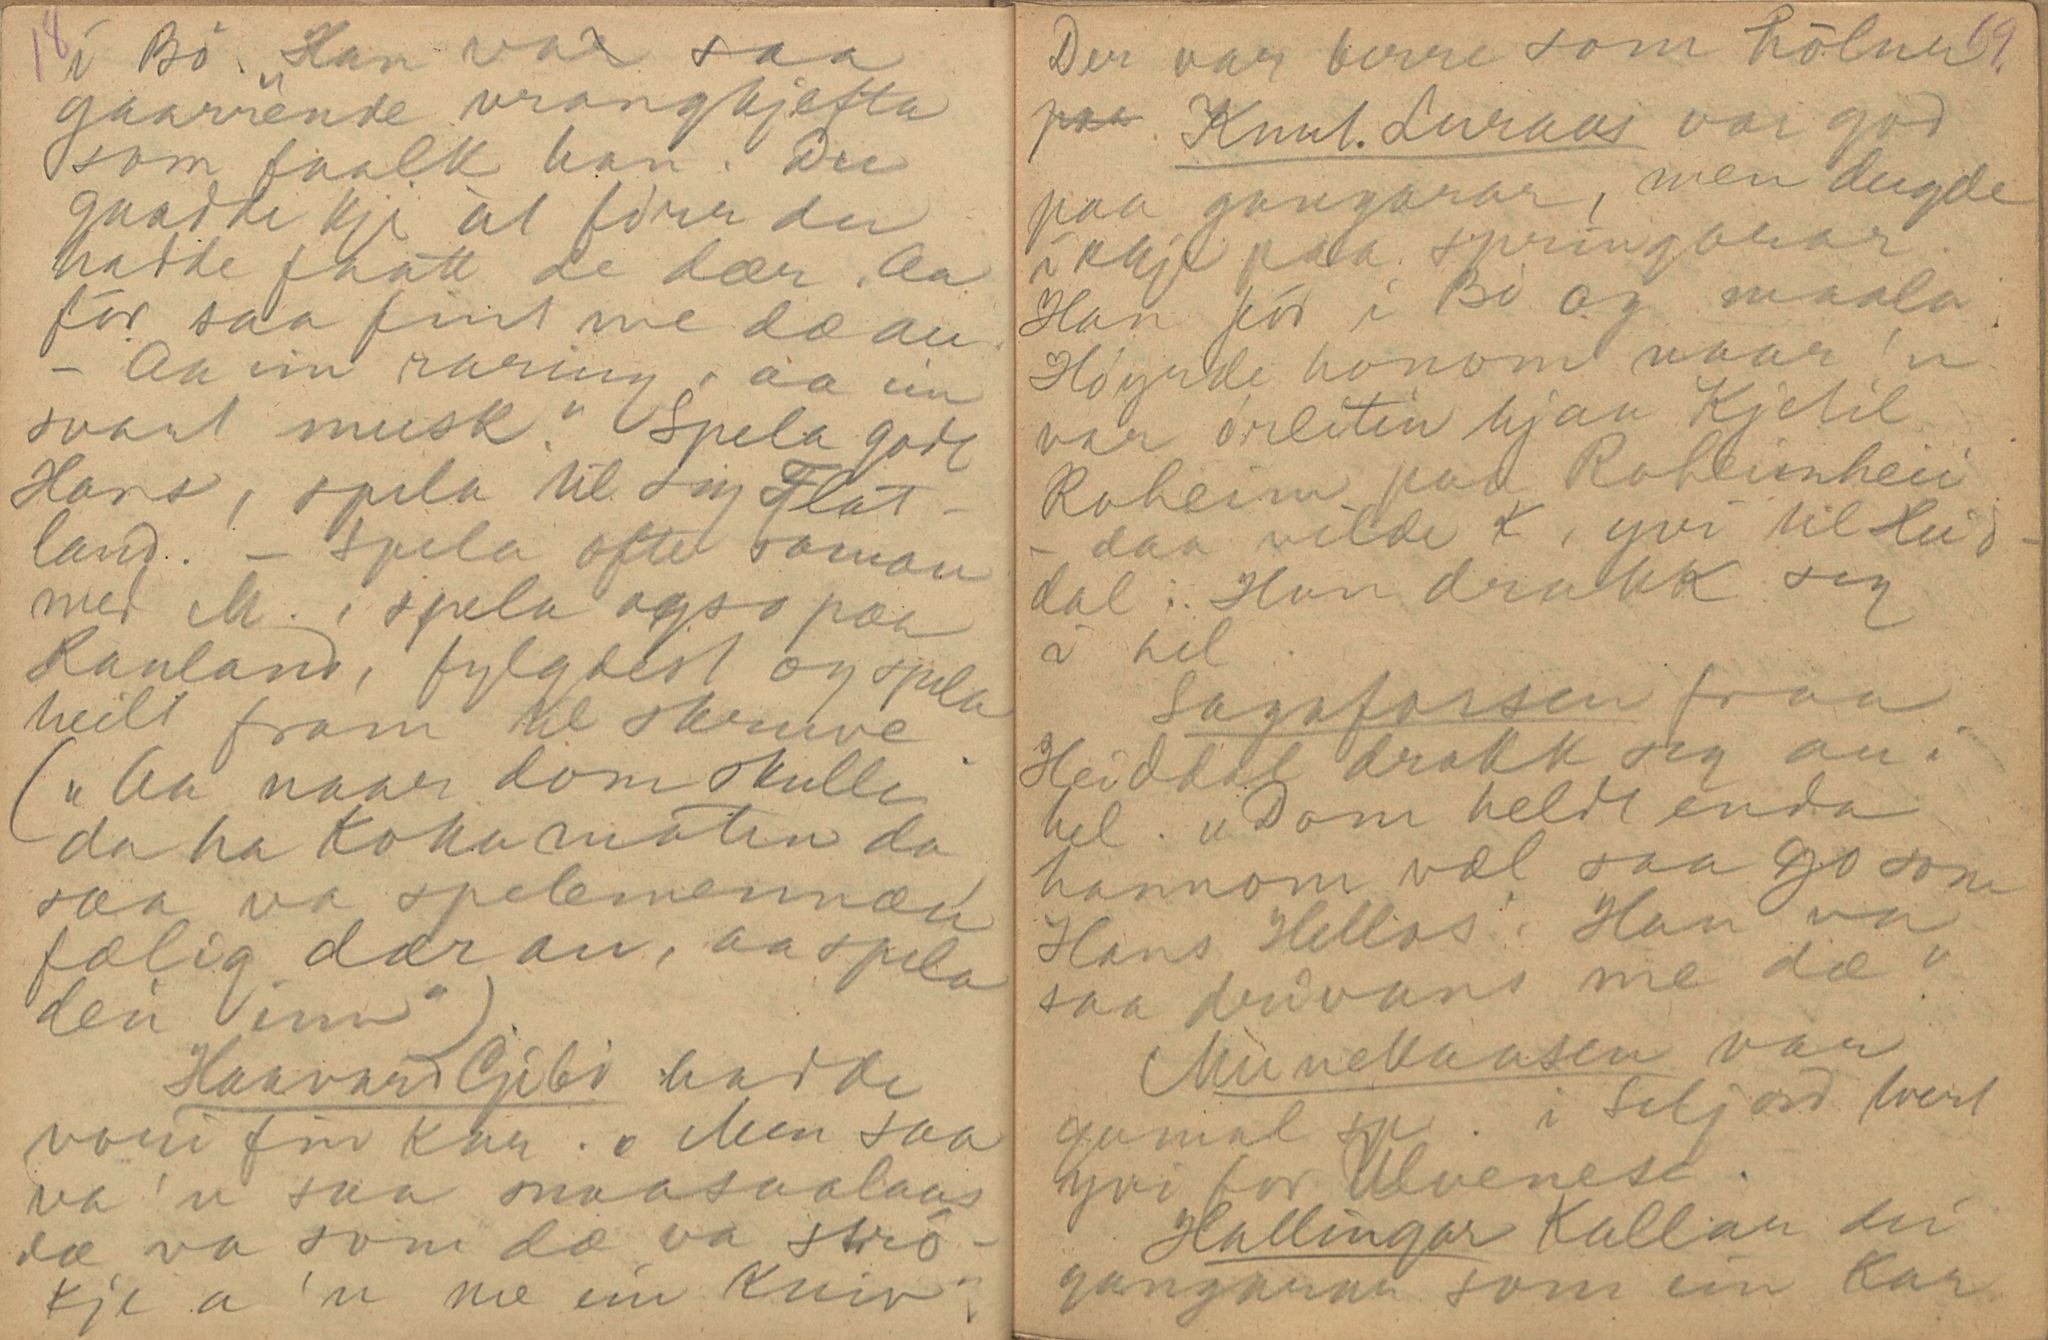 18
i Bö. „Han var saa
gaarrende vrangkjefta
som faalk han. Du
gaadde kje at förr du
hadde faatt de dær. Aa
för saa fint me dæ au.
– Aa ein raring, aa ein
svart musk." Spela godt
Hans, spela til seg Flat-
land. – Spela ofte saman
med M., spela ogso paa
Rauland, fylgdest og spela
heilt fram til skruve
(„Aa naar dom skulle
da ha Kokamaten da
saa va spelemennæn
fælig dær au, aa spela
den inn")
Haavard Gibö hadde
vori fin kar. „Men saa
va 'n saa smaasaalaas
dæ va som dæ va strö-
kje a 'n me ein kniv".
69.
Der var berre som hölner
paa Knut Luraas var god
paa gangarar, men dugde
ikkje paa springarar.
Han för i Bö og maala.
Höyrde honom naar 'n
var örliten hjaa Kjetil
Roheim paa Roheimheii
– daa vilde K. yvi til Heid-
dal. Han drakk seg
i hel.
Sagafossen fraa
Heiddal drakk seg au i
hel. „Dom heldt enda
hannom væl saa go som
Hans Hellos. Han va
saa drivans me dæ".
Munekaasen var
gamal sp. i Seljord tvert
yvi for Ulvenese.
Hallingar kallar dei
gangarar som ein kar